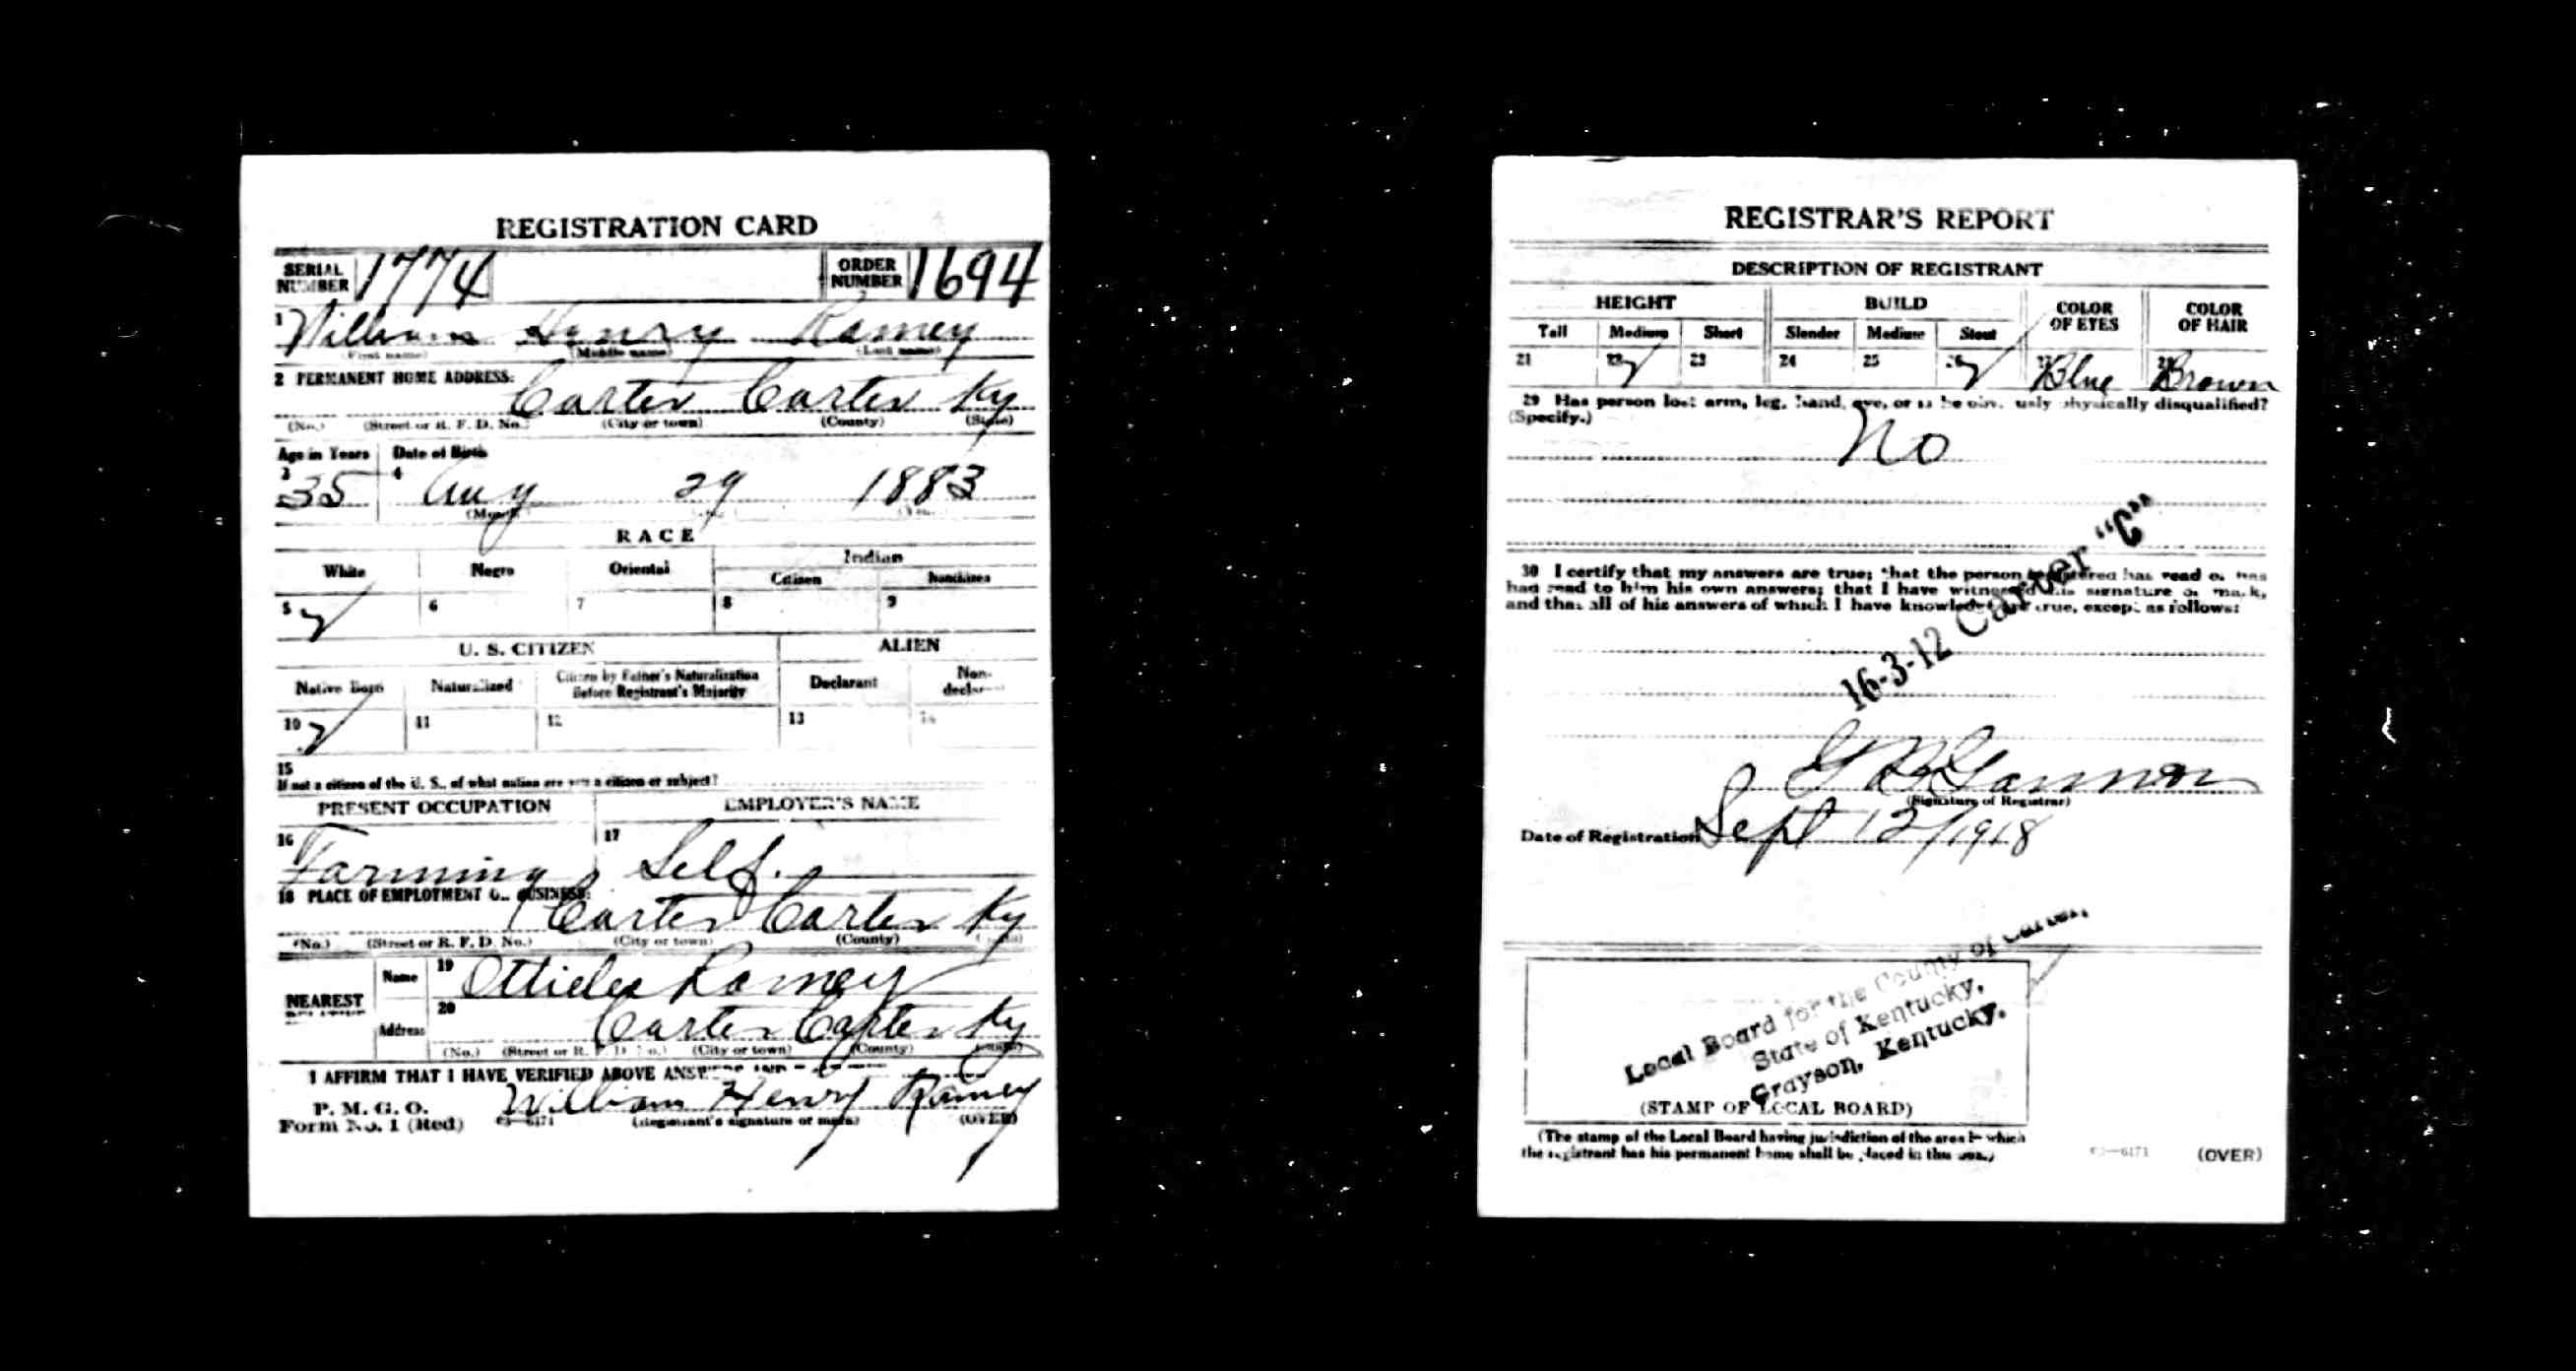 REGISTRATION CARD
SERIAL NUMBER 1774 ORDER NUMBER 1694
1 William Henry Ramey
(First name) (Middle name) (Last name)
2 PERMANENT HOME ADDRESS:
Carter Carter Ky
(No.) (Street or R. F. D. No.) (City or town) (County) (State)
Age in Years Date of Birth
3 35 4 Aug 29 1883
(Month)
RACE
White Negro Oriental Indian
Citizen Noncitizen
5 ✓ 6 7 8 9
U. S. CITIZEN ALIEN
Native Born Naturalized Citizen by Father's Naturalization Before Registrant's Majority Declarant Non-declarant
10 ✓ 11 12 13 14
15
If not a citizen of the U. S., of what nation are you a citizen or subject?
PRESENT OCCUPATION EMPLOYER'S NAME
16 Farming 17 Self.
18 PLACE OF EMPLOYMENT OR BUSINESS:
Carter Carter Ky
(No.) (Street or R. F. D. No.) (City or town) (County) (State)
NEAREST RELATIVE Name 19 Ramey
Address 20 Carter Carter Ky
(No.) (Street or R. F. D. No.) (City or town) (County) (State)
I AFFIRM THAT I HAVE VERIFIED ABOVE ANSWERS AND
P. M. G. O.
Form No. 1 (Red) 03—6171 William Henry Ramey
(Registrant's signature or mark) (OVER)
REGISTRAR'S REPORT
DESCRIPTION OF REGISTRANT
HEIGHT BUILD COLOR OF EYES COLOR OF HAIR
Tall Medium Short Slender Medium Stout
21 22 ✓ 23 24 25 26 ✓ 27 Blue 28 Brown
29 Has person lost arm, leg, hand, eye, or is he obviously physically disqualified?
(Specify.)
No
30 I certify that my answers are true; that the person registered has read or has
had read to him his own answers; that I have witnessed his signature or mark,
and that all of his answers of which I have knowledge are true, except as follows:
16-3-12 Carter "C"
(Signature of Registrar)
Date of Registration Sept 12/1918
Local Board for the County of Carter,
State of Kentucky,
Grayson, Kentucky.
(STAMP OF LOCAL BOARD)
(The stamp of the Local Board having jurisdiction of the area in which
the registrant has his permanent home shall be placed in this box.)
03—6171 (OVER)